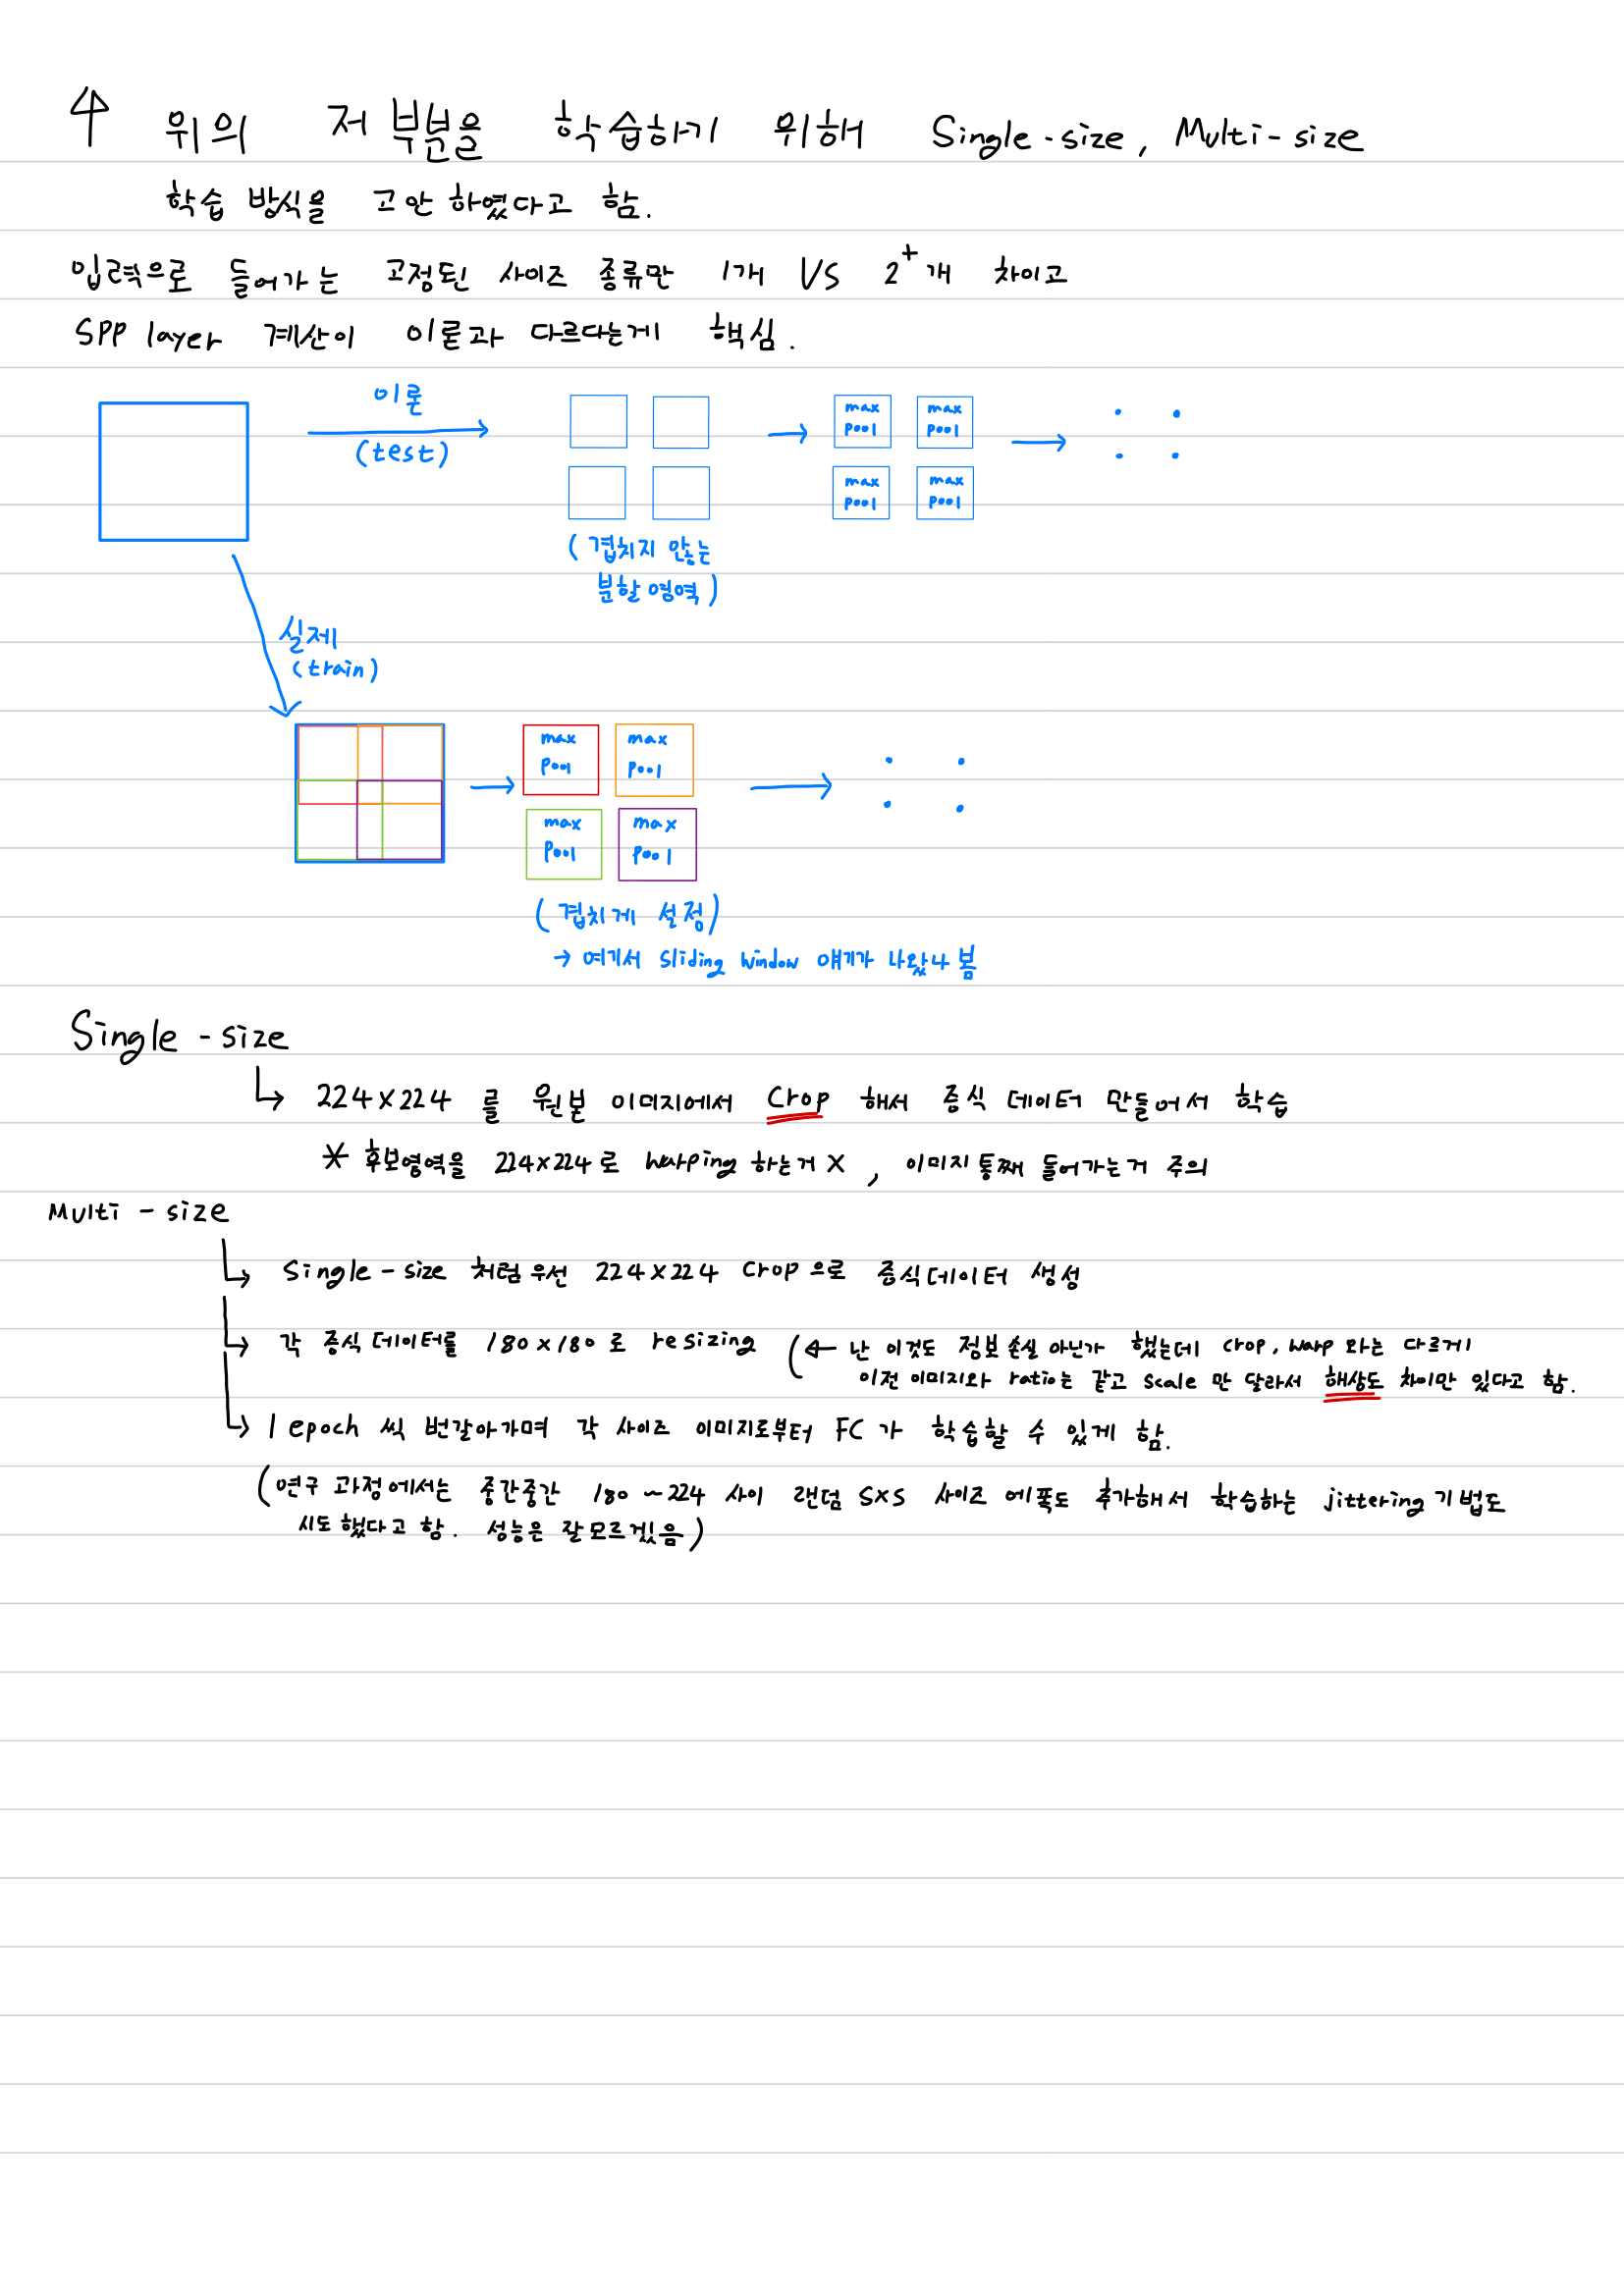 위의 저 부분을 학습하기 위해 Single-size, Multi-size
학습 방식을 고안하였다고 함.
입력으로 들어가는 고정된 사이즈 종류만 1개 VS 2+개 차이고
SPP layer 계산이 이론과 다르다는게 핵심.
이론
(test)
max pool
max pool
max pool
max pool
(겹치지 않는
분할영역)
실제
(train)
max pool
max pool
max pool
max pool
(겹치게 설정)
→ 여기서 sliding window 얘기가 나왔나봄
Single-size
224x224 를 원본 이미지에서 Crop 해서 증식 데이터 만들어서 학습
* 후보영역을 224x224로 warping 하는거 X, 이미지 통째 들어가는거 주의
Multi-size
Single-size 처럼 우선 224x224 crop으로 증식데이터 생성
각 증식 데이터를 180x180로 resizing (← 난 이것도 정보 손실 아닌가 했는데 crop, warp 와는 다르게
이전 이미지와 ratio는 같고 scale 만 달라서 해상도 차이만 있다고 함.
1 epoch 씩 번갈아가며 각 사이즈 이미지로부터 FC가 학습할 수 있게 함.
(연구 과정에서는 중간중간 180~224 사이 랜덤 SXS 사이즈 에폭도 추가해서 학습하는 jittering 기법도
시도했다고 함. 성능은 잘모르겠음)